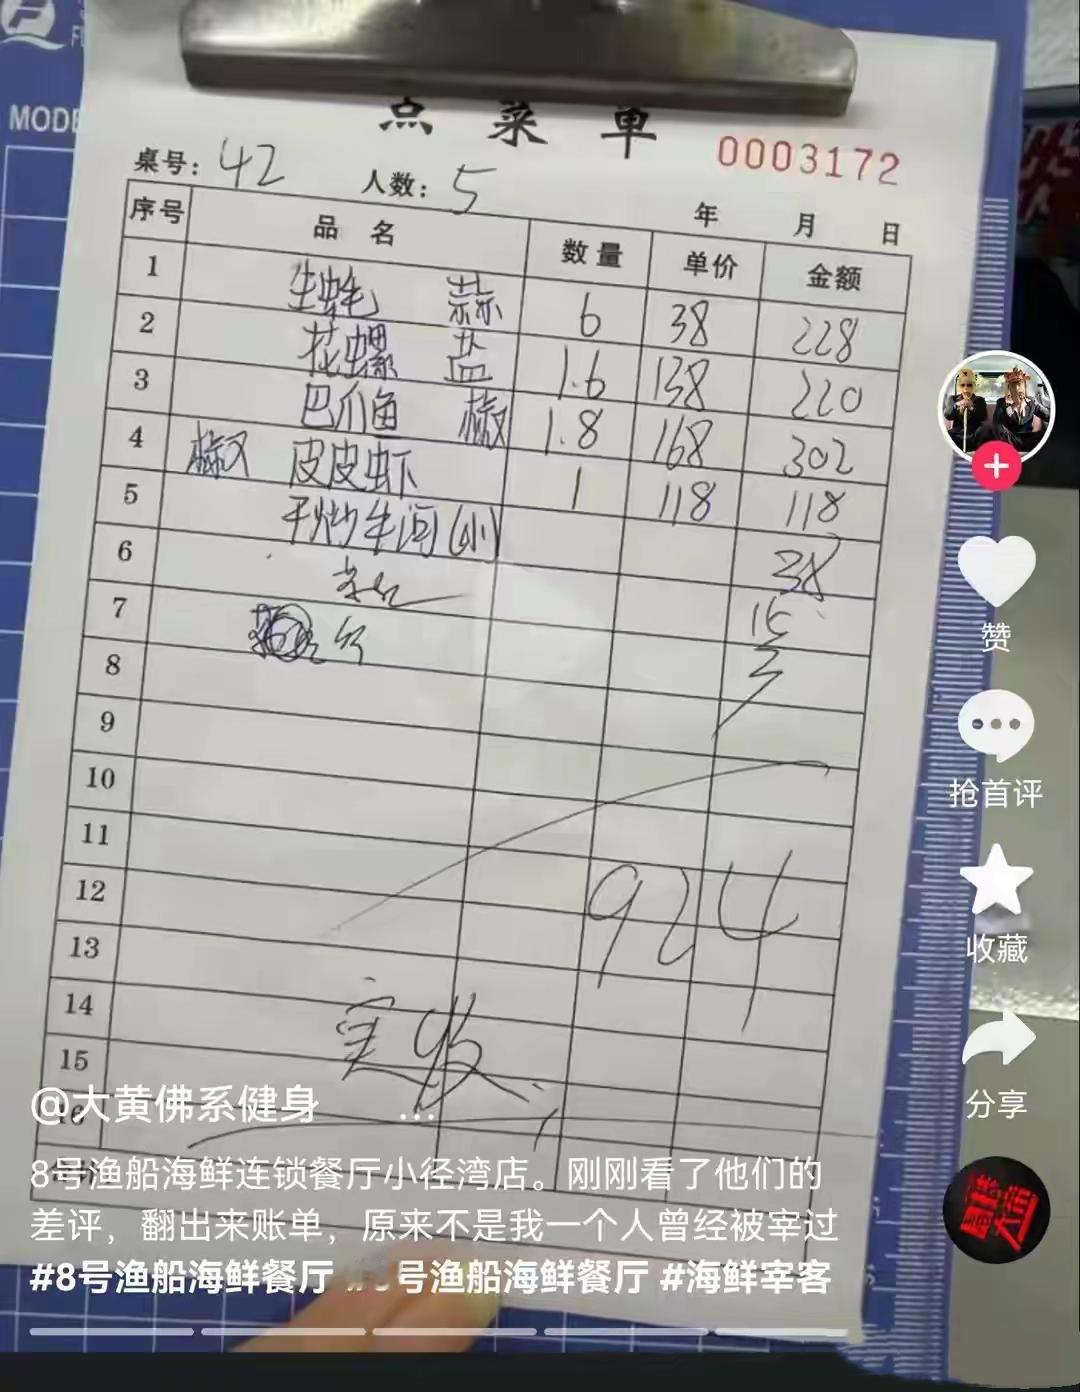 MODE
点菜单
0003172
桌号: 42 人数: 5 年 月 日
序号 品名 数量 单价 金额
1 生蚝 蒜 6 38 228
2 花螺 盐 1.6 138 220
3 巴爪鱼 椒 1.8 168 302
4 椒 皮皮虾 1 118 118
5 干炒牛河(小) 38
6 15
7 3
8
9
10
11
12 924
13
14
15
16
@大黄佛系健身 ...
8号渔船海鲜连锁餐厅小径湾店。刚刚看了他们的
差评，翻出来账单，原来不是我一个人曾经被宰过
#8号渔船海鲜餐厅 号渔船海鲜餐厅 #海鲜宰客
赞
抢首评
收藏
分享